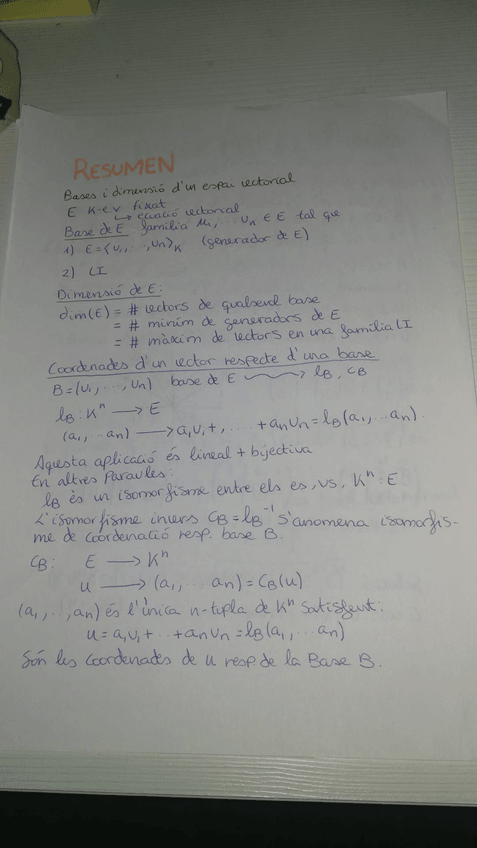 RESUMEN
Bases i dimensió d'un espai vectorial
E K-ev fixat
↳ equació vectorial
Base de E família u₁, ... uₙ ∈ E tal que
1) E=⟨u₁, ..., uₙ⟩K (generador de E)
2) LI
Dimensió de E:
dim(E) = # vectors de qualsevol base
= # mínim de generadors de E
= # màxim de vectors en una família LI
Coordenades d'un vector respecte d'una base
B=(u₁, ..., uₙ) base de E ⟿ lB, CB
lB: Kⁿ → E
(a₁, .. aₙ) → a₁u₁+, ... +aₙuₙ=lB(a₁, ... aₙ).
Aquesta aplicació és lineal + bijectiva
En altres Paraules:
lB és un isomorfisme entre els es, vs, Kⁿ i E
L'isomorfisme invers CB=lB⁻¹ s'anomena isomorfis-
me de coordenació resp. base B.
CB: E → Kⁿ
u → (a₁, ... aₙ)=CB(u)
(a₁, .., aₙ) és l'única n-tipla de Kⁿ satisfent:
u=a₁u₁+ .. +aₙuₙ=lB(a₁, ... aₙ)
Són les Coordenades de u resp. de la Base B.